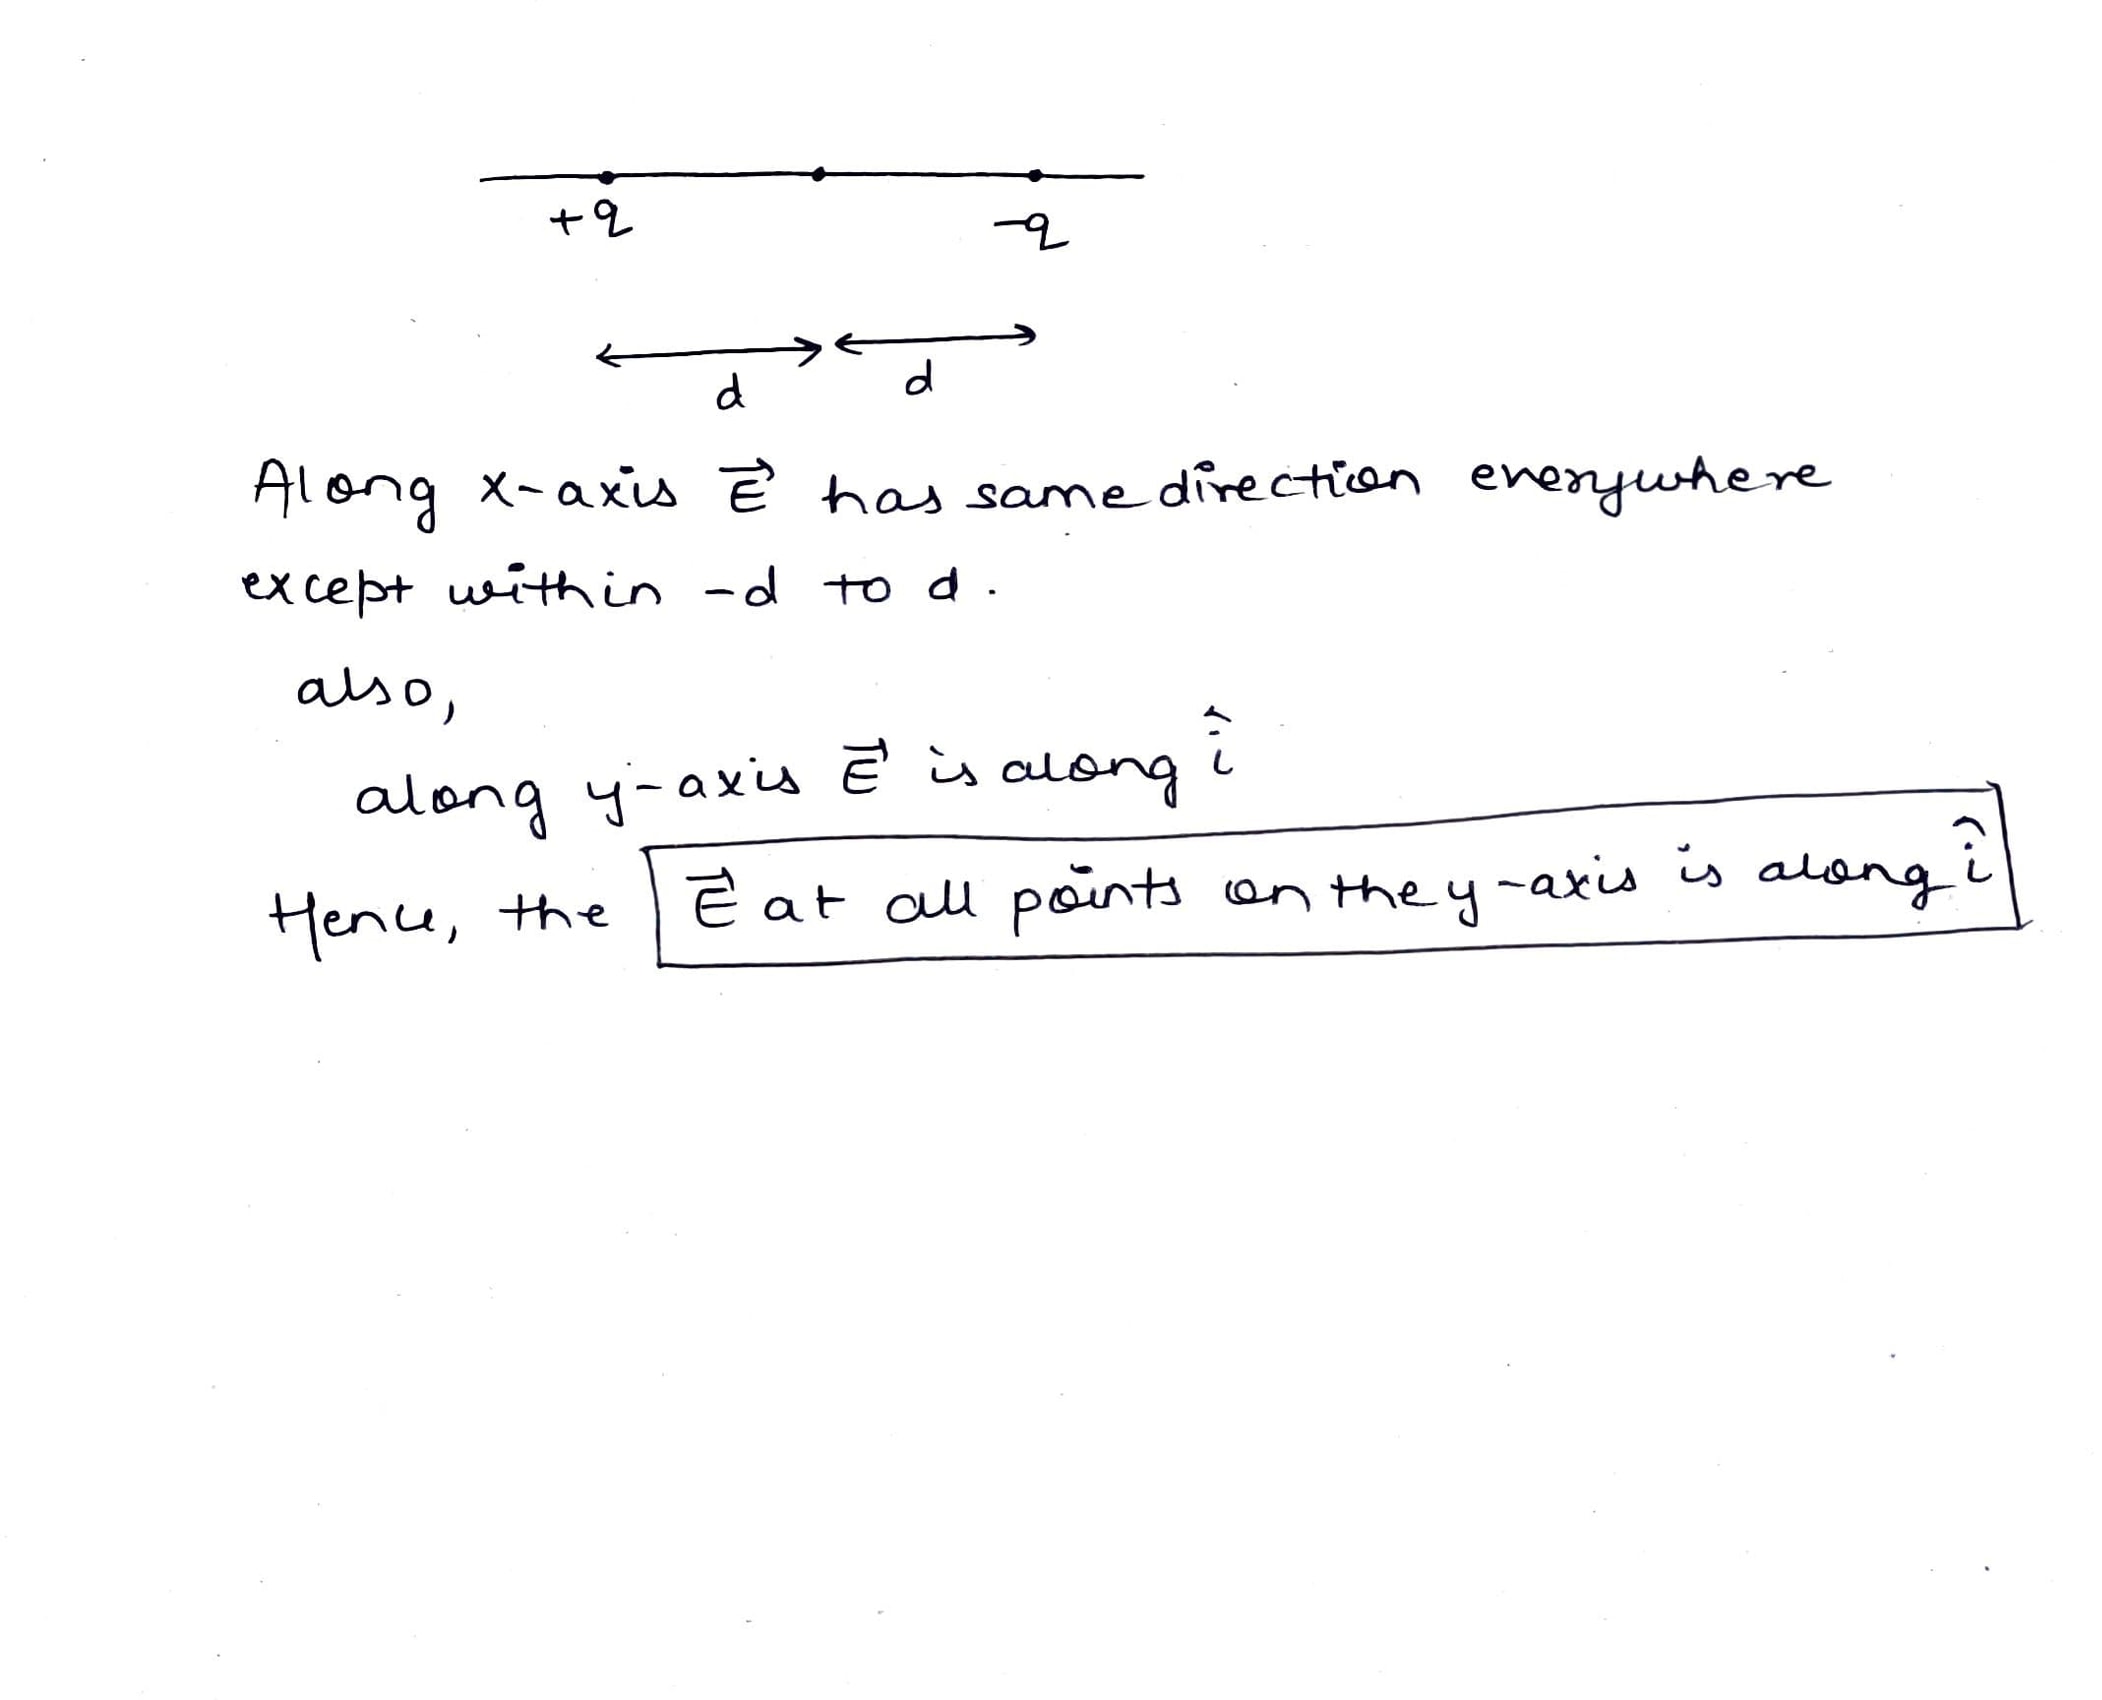 +q -q
d d
Along x-axis E⃗ has same direction everywhere
except within -d to d.
also,
along y-axis E⃗ is along î
Hence, the E⃗ at all points on the y-axis is along î